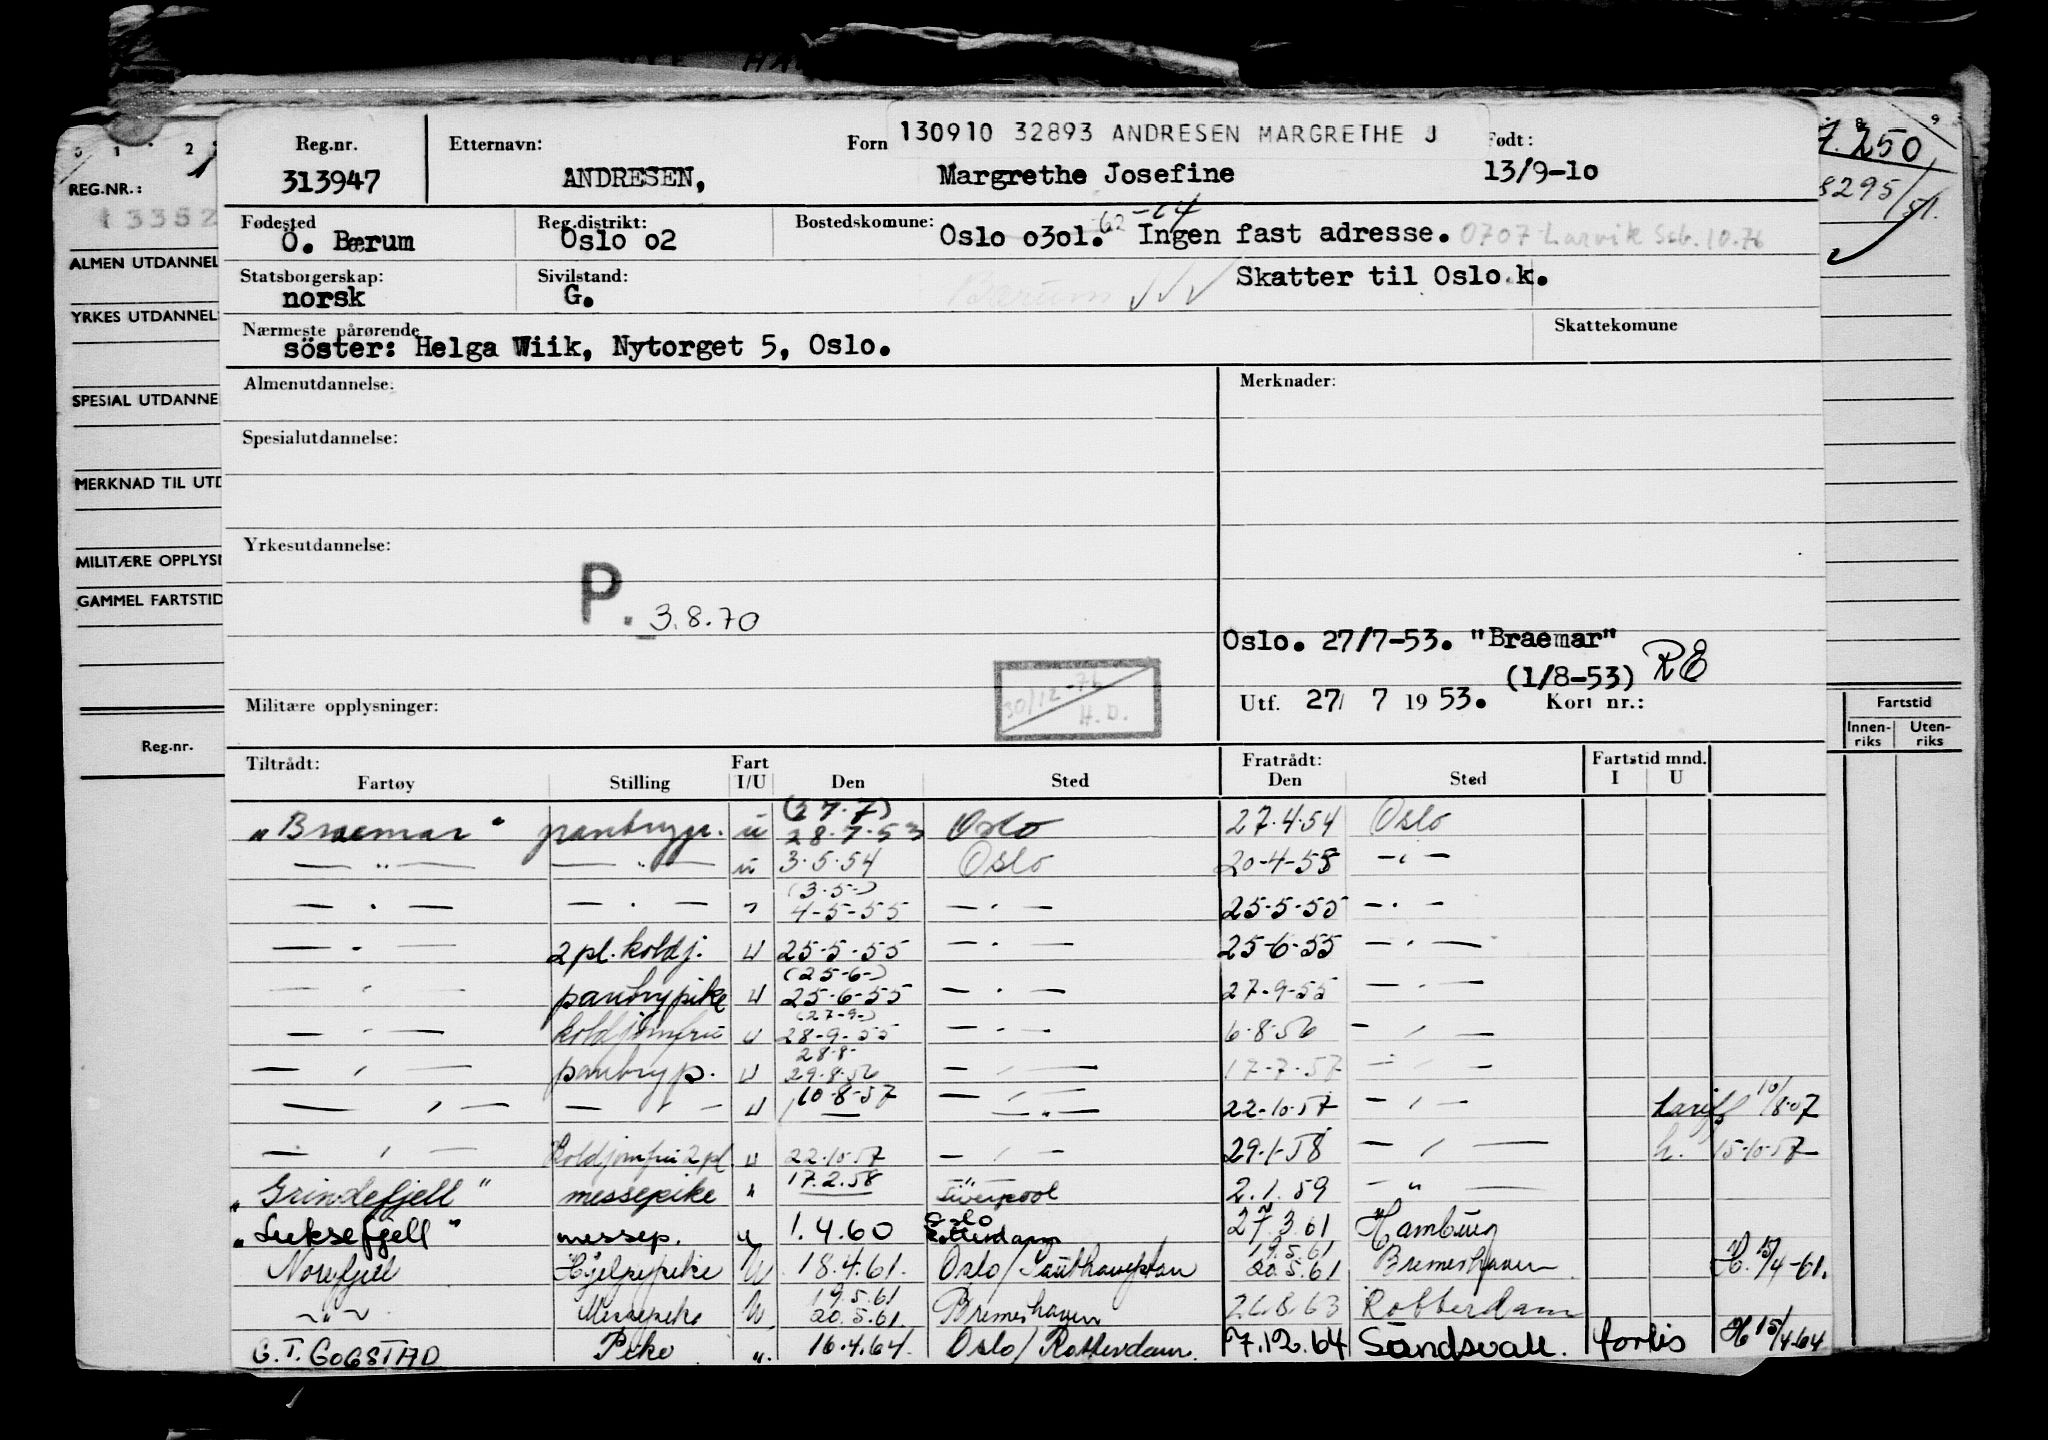 130910 32893 ANDRESEN MARGRETHE J
Reg.nr. Etternavn: Forn Født:
313947 ANDRESEN, Margrethe Josefine 13/9-10
7.250
8295/51.
REG.NR.:
13352
Fødested Reg.distrikt: Bostedskomune: 62-64
Ö. Bærum Oslo 02 Oslo 0301. Ingen fast adresse. 0707 Larvik Seb. 10.76
ALMEN UTDANNEL
Statsborgerskap: Sivilstand: Skatter til Oslo k.
norsk G. Bærum
YRKES UTDANNEL
Nærmeste pårørende Skattekomune
söster: Helga Wiik, Nytorget 5, Oslo.
Almenutdannelse: Merknader:
SPESIAL UTDANNE
Spesialutdannelse:
MERKNAD TIL UTD
Yrkesutdannelse:
MILITÆRE OPPLYSN
GAMMEL FARTSTID
P. 3.8.70
Oslo. 27/7-53. "Braemar"
(1/8-53) RE
30/12-76
H.D.
Militære opplysninger: Utf. 27/ 7 1953. Kort nr.:
Fartstid
Innenriks Utenriks
Reg.nr.
Tiltrådt: Fart Fratrådt: Fartstid mnd.
Fartøy Stilling I/U Den Sted Den Sted I U
(27.7)
"Braemar" pantryp. u 28.7.53 Oslo 27.4.54 Oslo
— " — — " — u 3.5.54 Oslo 20-4-55 — " —
(3.5-)
— " — — " — " 4-5-55 — " — 25.5.55 — " —
— " — 2 pl. koldj. u 25.5.55 — " — 25-6-55 — " —
(25-6-)
— " — pantrypike u 25-6-55 — " — 27-9-55 — " —
(27-9-)
— " — koldjomfru u 28-9-55 — " — 6-8-56 — " —
28-8-
— " — pantryp. u 29.8.56 — " — 17-7-57 — " —
— " — — " — u 10-8-57 — " — 22-10-57 — " — 10/8-57
— " — Koldjomfru 2 pl. u 22.10.57 — " — 29.1.58 — " — h. 15-10-57
"Grindefjell" messepike " 17.2.58 Liverpool 2.1.59 — " —
Oslo
"Luksefjell" messep. u 1.4.60 Rotterdam 27.3.61 Hamburg
19.5.61
Norefjell Hjelpepike U 18.4.61. Oslo/Southampton 20.5.61 Bremerhaven H. 15/4-61.
19.5.61
— " — Messepike U 20.5.61. Bremerhaven 26.8.63 Rotterdam
C.T. GOGSTAD Pike ". 16.4.64. Oslo/Rotterdam. 7.12.64 Sundsvall. forlis H 15/4-64